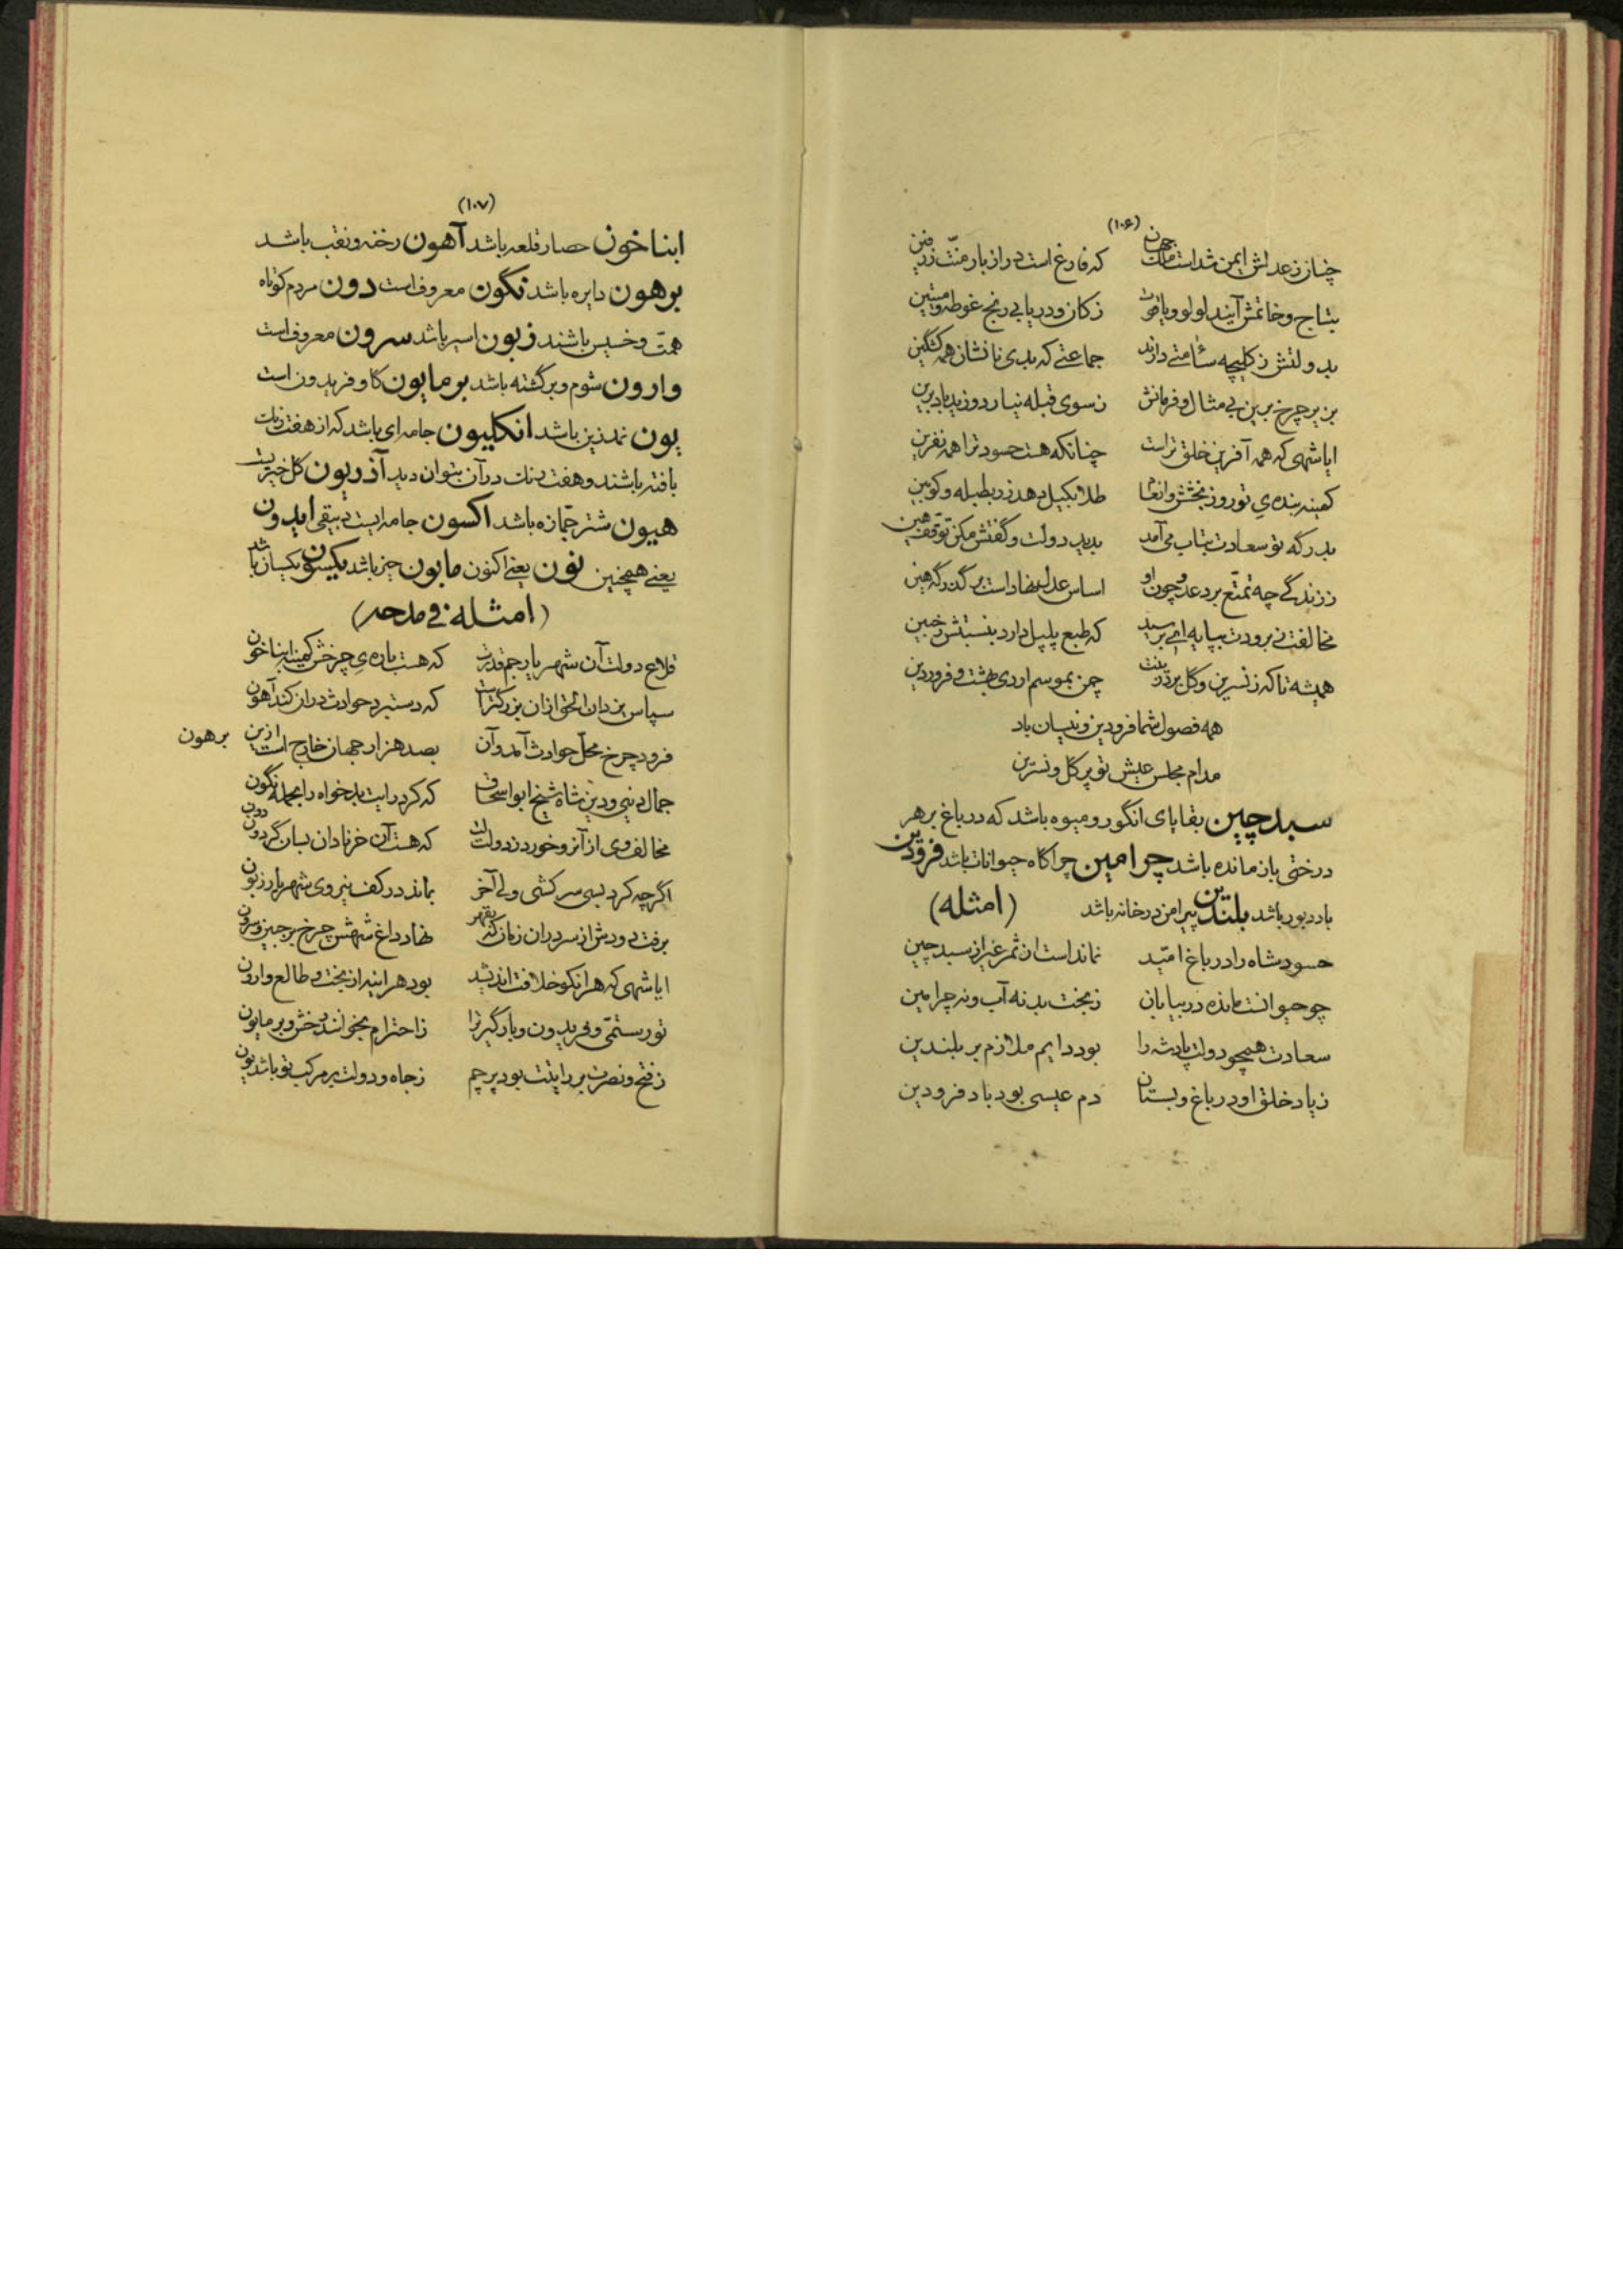 (۱۰۶)
چنان ز عدلش ایمن شداست ملک جهان که فارغ است در از بار منّت زرفین
بتاج و خاتمش آیند لولو و یاقوت ز کان و دریا بی رنج غوطه و میتین
بدولتش ز کلیچه سئامتی دارند جماعتی که بدی نانشان همه کشکین
بزیر چرخ برین بی مثال و فرمانش ز سوی قبله نیارد وزید باد برین
ایا شهی که همه آفرین خلق تراست چنانکه هست حسود ترا همه نفرین
کمینه بنده‌ی تو روز بخشش و انعام طلا بکیل دهد زر بطبله و کوبین
بدرگه تو سعادت شتاب می‌آمد بدید دولت و گفتش مکن توقف هین
ز زندگی چه تمتّع برد عدو چون او اساس عدل نهاداست بر گذرگه هین
مخالفت ز برودت بپایه‌ای برسید که طبع پلپل دارد بنسبتش خبین
همیشه تا که ز نسرین و گل بود زینت چمن بموسم اردی بهشت و فروردین
همه فصول شما فرودین و نیسان باد
مدام مجلس عیش تو پر گل و نسرین
سبدچین بقایای انگور و میوه باشد که در باغ بر هر
درختی باز مانده باشد چرامین چراگاه حیوانات باشد فرودین
باد دبور باشد بلندین پیرامن در خانه باشد (امثله)
حسود شاه را در باغ امّید نمانداست از ثمر غیر از سبدچین
چو حیوانست مانده در بیابان ز بخت بد نه آب و نه چرامین
سعادت همچو دولت پادشه را بود دایم ملازم بر بلندین
ز یاد خلق او در باغ و بستان دم عیسی بود باد فرودین
(۱۰۷)
ابناخون حصار قلعه باشد آهون رخنه و نقب باشد
برهون دایره باشد نگون معروف است دون مردم کوتاه
همّت و خسیس باشند زبون اسیر باشد سرون معروف است
وارون شوم و برگشته باشد برمایون گاو فریدون است
یون نمد زین باشد انکلیون جامه‌ای باشد که از هفت رنگ
بافته باشند و هفت رنگ در آن بتوان دید آذریون گل خیریست
هیون شتر جمّازه باشد اکسون جامه‌ایست دیبقی ایدون
یعنی همچنین نون یعنی اکنون مابون حیز باشد یکسون یکسان باشد
(امثله فی مدحه)
قلاع دولت آن شهریار جم قدرت که هست باره‌ی چرخش کمینه ابناخون
سپاس یزدان الحق ازان بزرگتراست که دستبرد حوادث دران کند آهون
فرود چرخ محلّ حوادث آمد و آن بصد هزار جهان خارج است ازین برهون
جمال دنیی و دین شاه شیخ ابواسحاق که کرد رایت بدخواه را بحمله نگون
مخالف وی از آنرو خورد ز دولت لت که هست آن خر نادان بسان گردون دون
اگر چه کرد بسی سرکشی ولی آخر بماند در کف نیروی شهریار زبون
برفت دورش از سردران زمان که بقهر نهاد داغ شهش چرخ بر جبین و سرون
ایا شهی که هر آنکو خلافت اندیشد بود هر آینه از بخت و طالع وارون
تو رستمّی و فریدون و بارگیر ترا ز احترام بخوانند رخش و برمایون
ز فتح و نصرت بر رایتت بود پرچم ز جاه و دولت بر مرکب تو باشد یون